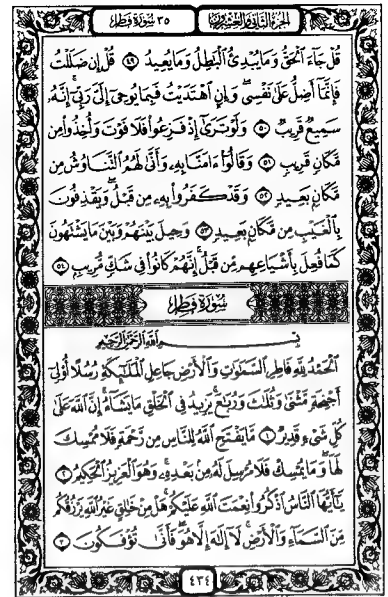 الجزء الثاني والعشرون ٣٥ سورة فاطر
قُلْ جَآءَ ٱلْحَقُّ وَمَا يُبْدِئُ ٱلْبَٰطِلُ وَمَا يُعِيدُ ٤٩ قُلْ إِن ضَلَلْتُ
فَإِنَّمَآ أَضِلُّ عَلَىٰ نَفْسِى وَإِنِ ٱهْتَدَيْتُ فَبِمَا يُوحِىٓ إِلَىَّ رَبِّىٓ إِنَّهُۥ
سَمِيعٌ قَرِيبٌ ٥٠ وَلَوْ تَرَىٰٓ إِذْ فَزِعُوا۟ فَلَا فَوْتَ وَأُخِذُوا۟ مِن
مَّكَانٍ قَرِيبٍ ٥١ وَقَالُوٓا۟ ءَامَنَّا بِهِۦ وَأَنَّىٰ لَهُمُ ٱلتَّنَاوُشُ مِن
مَّكَانٍۭ بَعِيدٍ ٥٢ وَقَدْ كَفَرُوا۟ بِهِۦ مِن قَبْلُ وَيَقْذِفُونَ
بِٱلْغَيْبِ مِن مَّكَانٍۭ بَعِيدٍ ٥٣ وَحِيلَ بَيْنَهُمْ وَبَيْنَ مَا يَشْتَهُونَ
كَمَا فُعِلَ بِأَشْيَاعِهِم مِّن قَبْلُ إِنَّهُمْ كَانُوا۟ فِى شَكٍّ مُّرِيبٍۭ ٥٤
سُورَةُ فَاطِرٍ
بِسْمِ ٱللَّهِ ٱلرَّحْمَٰنِ ٱلرَّحِيمِ
ٱلْحَمْدُ لِلَّهِ فَاطِرِ ٱلسَّمَٰوَٰتِ وَٱلْأَرْضِ جَاعِلِ ٱلْمَلَٰٓئِكَةِ رُسُلًا أُو۟لِىٓ
أَجْنِحَةٍ مَّثْنَىٰ وَثُلَٰثَ وَرُبَٰعَ يَزِيدُ فِى ٱلْخَلْقِ مَا يَشَآءُ إِنَّ ٱللَّهَ عَلَىٰ
كُلِّ شَىْءٍ قَدِيرٌ ١ مَّا يَفْتَحِ ٱللَّهُ لِلنَّاسِ مِن رَّحْمَةٍ فَلَا مُمْسِكَ
لَهَا وَمَا يُمْسِكْ فَلَا مُرْسِلَ لَهُۥ مِنۢ بَعْدِهِۦ وَهُوَ ٱلْعَزِيزُ ٱلْحَكِيمُ ٢
يَٰٓأَيُّهَا ٱلنَّاسُ ٱذْكُرُوا۟ نِعْمَتَ ٱللَّهِ عَلَيْكُمْ هَلْ مِنْ خَٰلِقٍ غَيْرُ ٱللَّهِ يَرْزُقُكُم
مِّنَ ٱلسَّمَآءِ وَٱلْأَرْضِ لَآ إِلَٰهَ إِلَّا هُوَ فَأَنَّىٰ تُؤْفَكُونَ ٣
٤٣٤